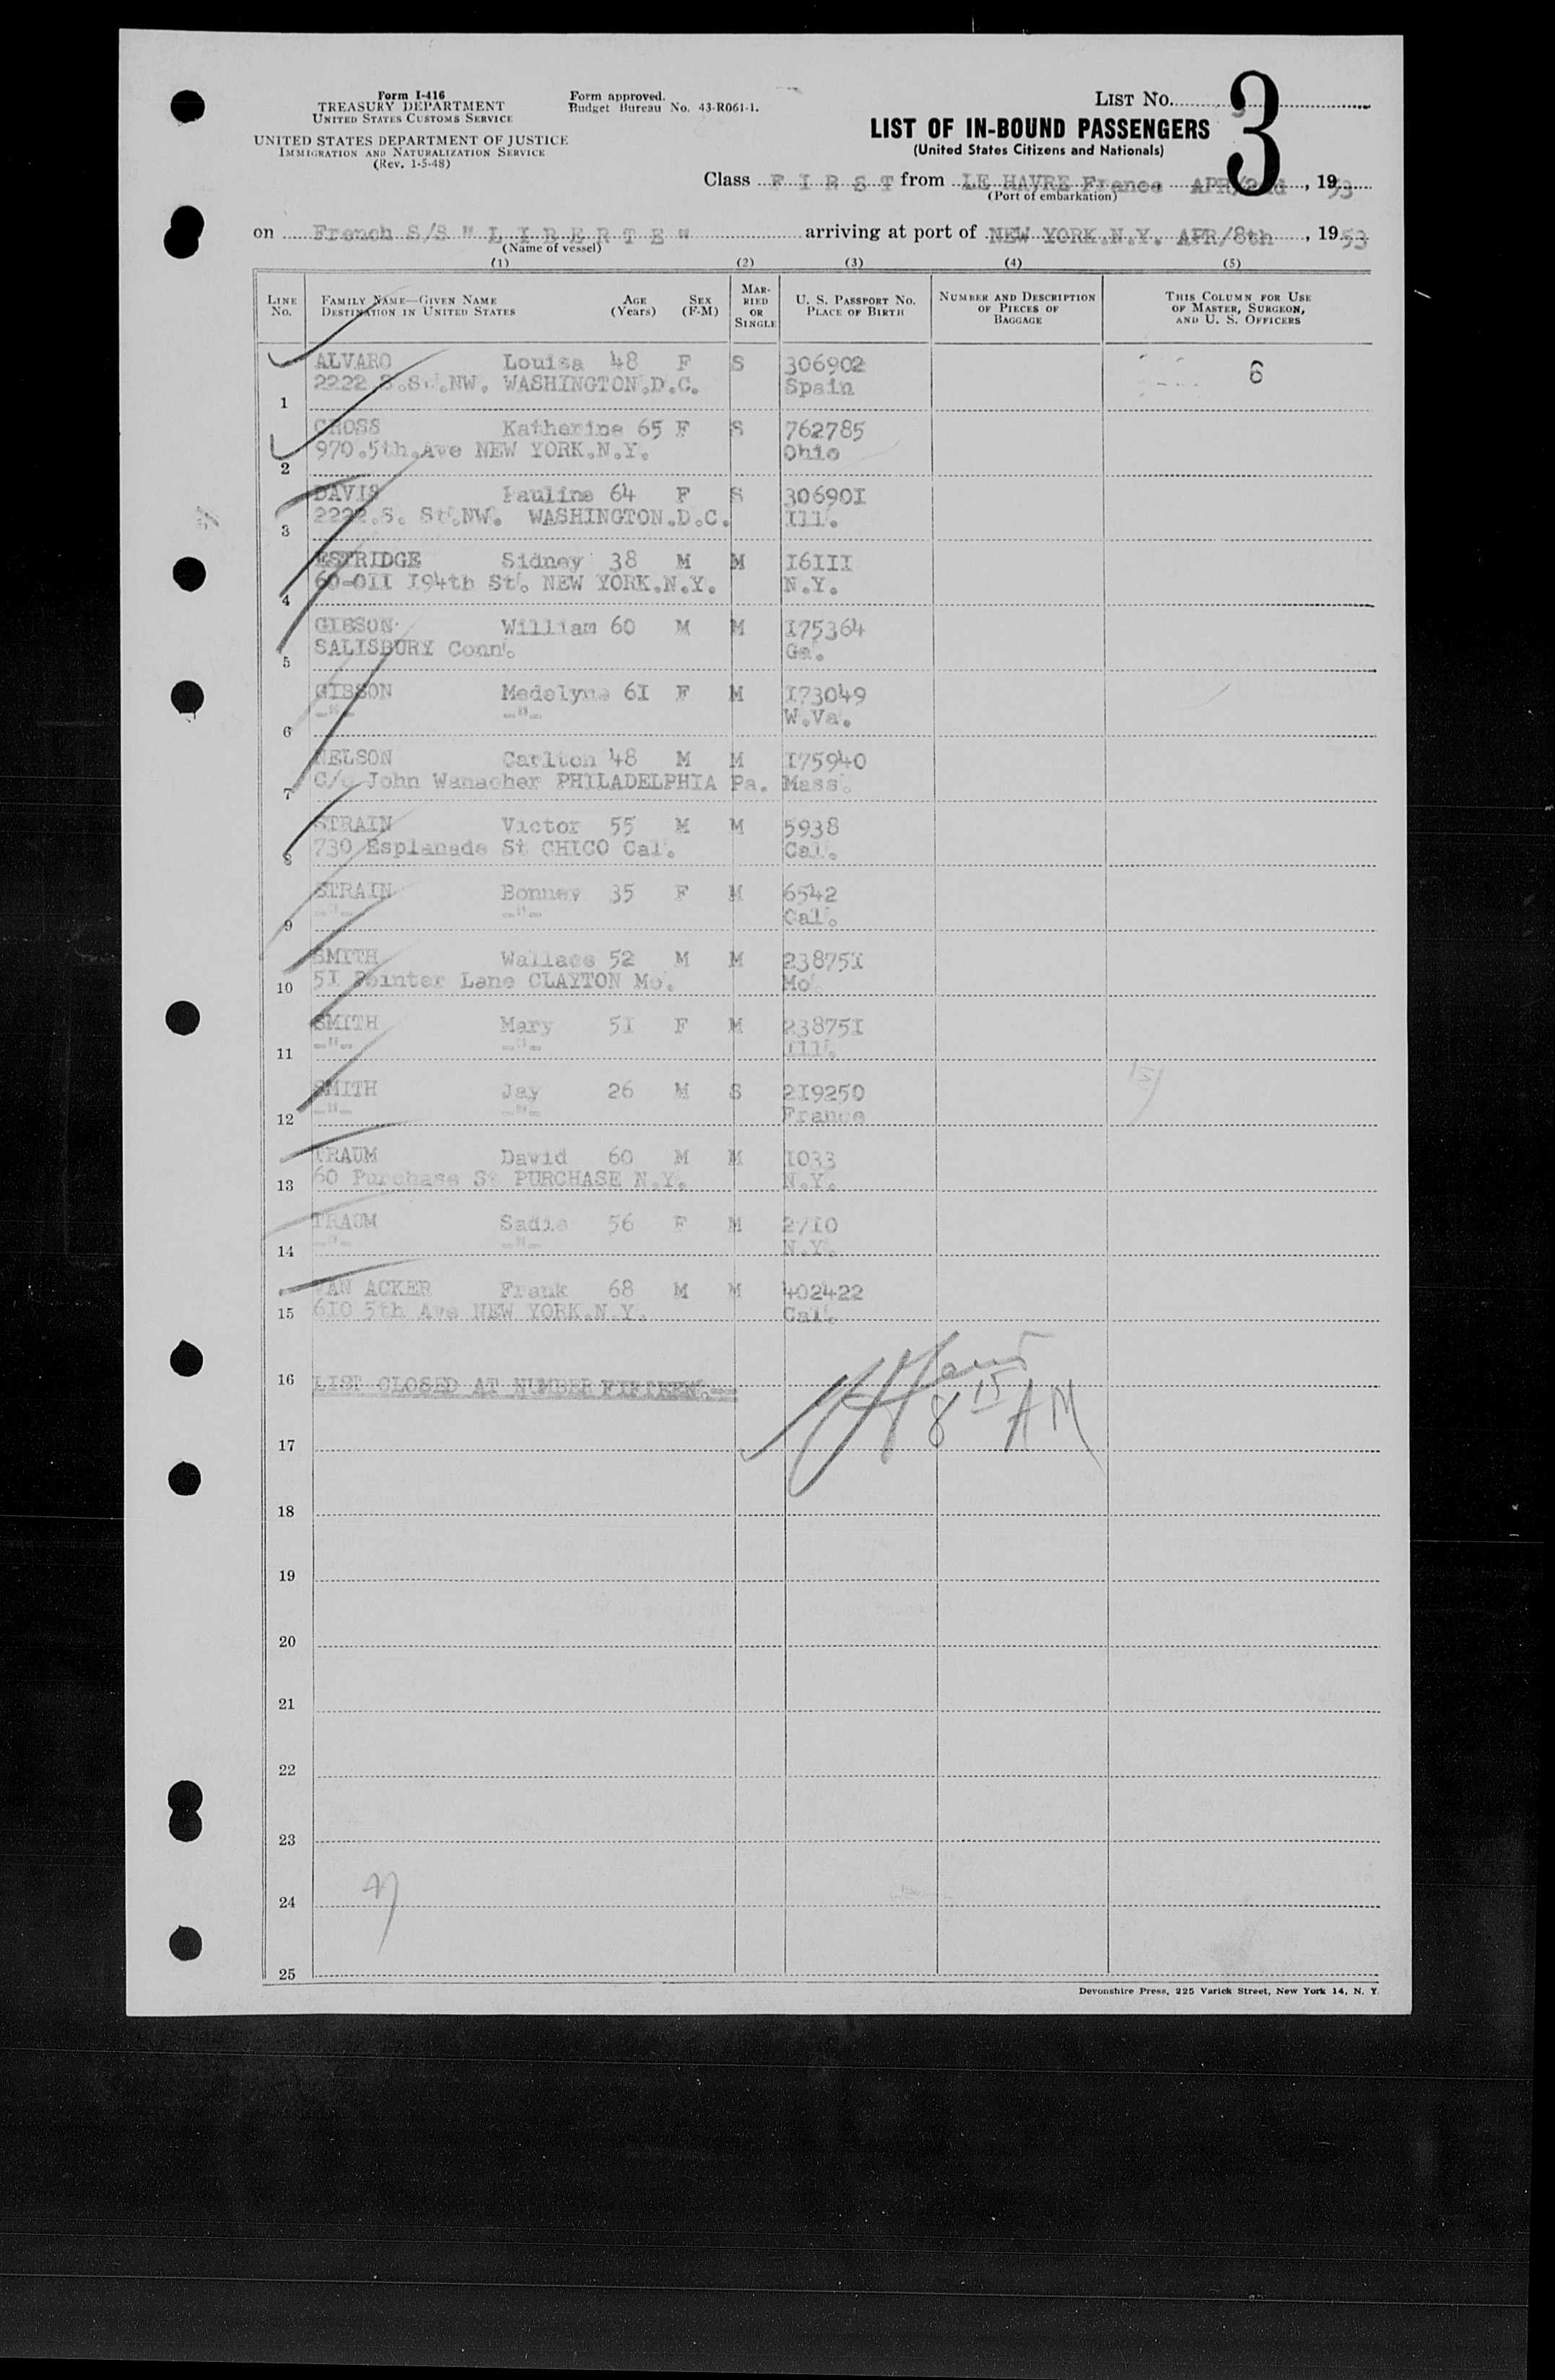 Form I-416
TREASURY DEPARTMENT
UNITED STATES CUSTOMS SERVICE
UNITED STATES DEPARTMENT OF JUSTICE
IMMIGRATION AND NATURALIZATION SERVICE
(Rev. 1-5-48)
Form approved.
Budget Bureau No. 43-R061-1.
LIST NO. 3
LIST OF IN-BOUND PASSENGERS
(United States Citizens and Nationals)
Class F I R S T from LE HAVRE France APR/2nd, 1953
(Port of embarkation)
on French S/S " L I B E R T E " arriving at port of NEW YORK.N.Y. APR/8th, 1953
(Name of vessel)
(1) (2) (3) (4) (5)
LINE NO. FAMILY NAME—GIVEN NAME DESTINATION IN UNITED STATES AGE (Years) SEX (F-M) MARRIED OR SINGLE U. S. PASSPORT NO. PLACE OF BIRTH NUMBER AND DESCRIPTION OF PIECES OF BAGGAGE THIS COLUMN FOR USE OF MASTER, SURGEON, AND U. S. OFFICERS
ALVARO Louisa 48 F S 306902 6
1 2222 S.St.NW. WASHINGTON.D.C. Spain
CROSS Katherine 65 F S 762785
2 970.5th.Ave NEW YORK.N.Y. Ohio
DAVIS Pauline 64 F S 30690I
3 2222.S. St.NW. WASHINGTON.D.C. Ill.
ESTRIDGE Sidney 38 M M I6III
4 60-0II I94th St. NEW YORK.N.Y. N.Y.
GIBSON William 60 M M I75364
5 SALISBURY Conn. Ga.
GIBSON Madelyne 6I F M I73049
6 -"- -"- W.Va.
NELSON Carlton 48 M M I75940
7 C/o John Wanacher PHILADELPHIA Pa. Mass.
STRAIN Victor 55 M M 5938
8 730 Esplanade St CHICO Cal. Cal.
STRAIN Bonney 35 F M 6542
9 -"- -"- Cal.
SMITH Wallace 52 M M 23875I
10 5I Pointer Lane CLAYTON Mo. Mo.
SMITH Mary 5I F M 23875I
11 -"- -"- Ill.
SMITH Jay 26 M S 2I9250
12 -"- -"- France
TRAUM David 60 M M I033
13 60 Purchase St PURCHASE N.Y. N.Y.
TRAUM Sadie 56 F M 27I0
14 -"- -"- N.Y.
VAN ACKER Frank 68 M M 402422
15 6I0 5th Ave NEW YORK.N.Y. Cal.
16 LIST CLOSED AT NUMBER FIFTEEN.--
8 15 AM
17
18
19
20
21
22
23
24
25
Devonshire Press, 225 Varick Street, New York 14, N. Y.